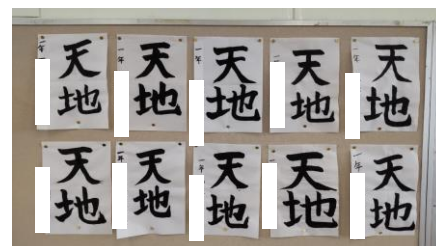 天地
一年
天地
一年
天地
一年
天地
一年
天地
一年
天地
一年
天地
一年
天地
一年
天地
一年
天地
一年